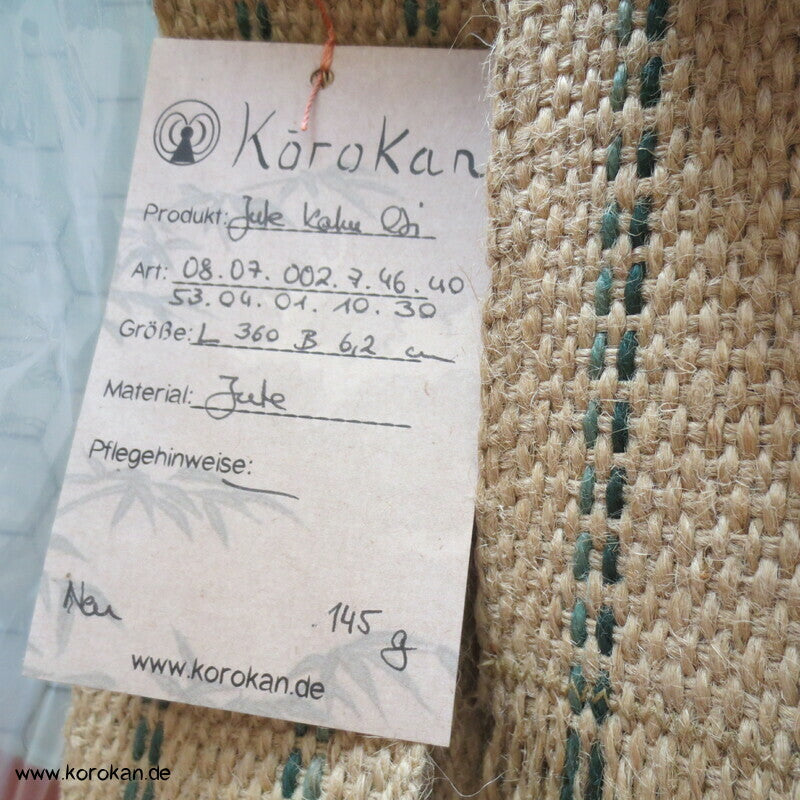 KōroKan
Produkt: Jute Kaku Obi
Art: 08.07.002.7.46.40
53.04.01.10.30
Größe: L 360 B 6,2 cm
Material: Jute
Pflegehinweise:
Neu
145 g
www.korokan.de
www.korokan.de